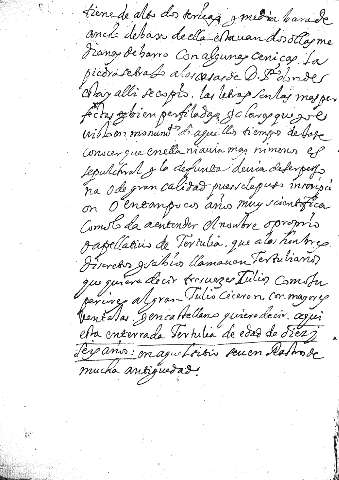 tiene de alto dos tercias, y media bara de
ancho debaxo de ella estauan dos ollas me
dianas de barro con algunas cenicas. La
piedra se trajo a las casas de D. donde
esta y alli se copio. las letras son las mas per
fectas y bien perfiladas, y claras que se
visto en monum.tos de aquellos tiempo de
conocer que en ella hauia mas numero es
sepulcral y la defunta deuia de ser perso
na o de gran calidad pues la puso inscripci
on o en tan pocos años muy scientifica
como lo da a entender el nombre o proprio
o apellatiuo de Tertulia. que a los hombres
discretos y sabios llamauan Tertulianos
que quiere decir tres vezes Tulio como su
parecires al gran Tulio Ciceron con mayores
ventajas. y en castellano quiere decir. aqui
esta enterrada Tertulia de edad de diez y
seis años: en aquel sitio se uen Rastro de
mucha antiguedad.